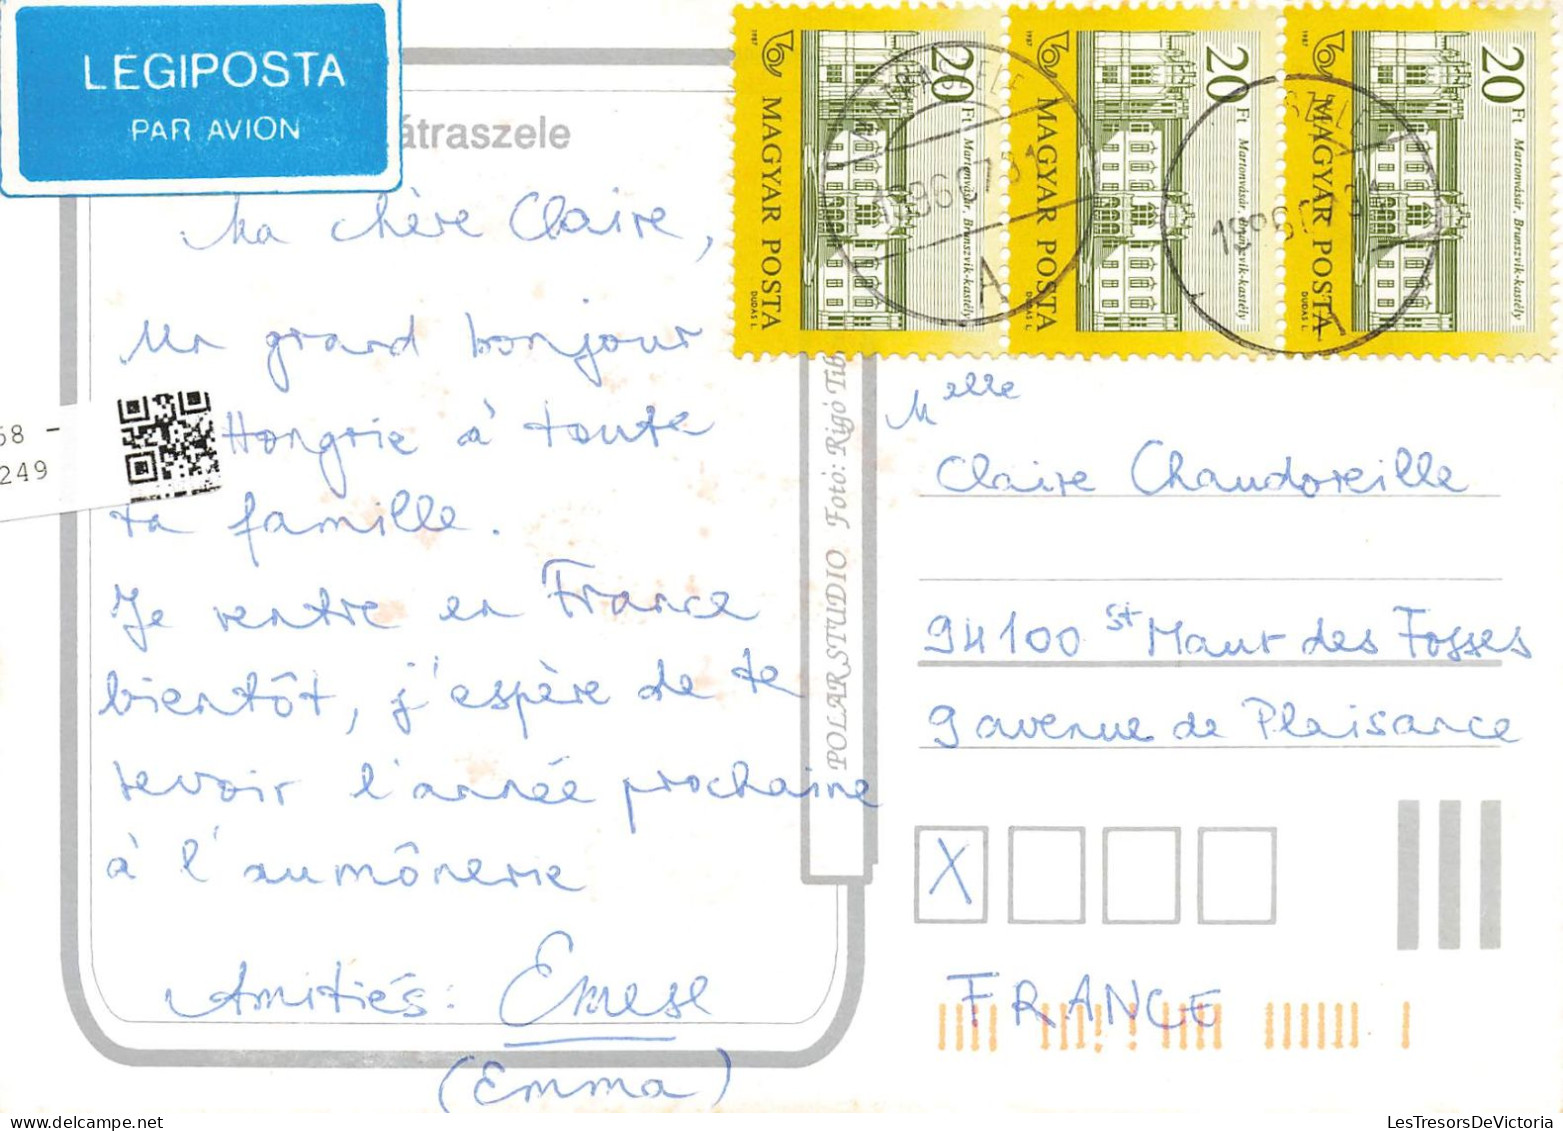 LEGIPOSTA
PAR AVION
átraszele
Ma chère Claire,
Un grand bonjour
Hongrie à toute
ta famille.
Je rentre en France
bientôt, j'espère de te
revoir l'année prochaine
à l'aumônerie
Amitiés: Emese
(Emma)
68 -
249
POLARSTUDIO Fotó: Rigó Tib
1987
MAGYAR POSTA
DUDÁS L.
20 Ft
Martonvásár, Brunszvik-kastély
1987
MAGYAR POSTA
DUDÁS L.
20 Ft
Martonvásár, Brunszvik-kastély
1987
MAGYAR POSTA
DUDÁS L.
20 Ft
Martonvásár, Brunszvik-kastély
A
Melle
Claire Chaudoreille
94100 St Maur des Fosses
9 avenue de Plaisance
X
FRANCE
LesTresorsDeVictoria.com